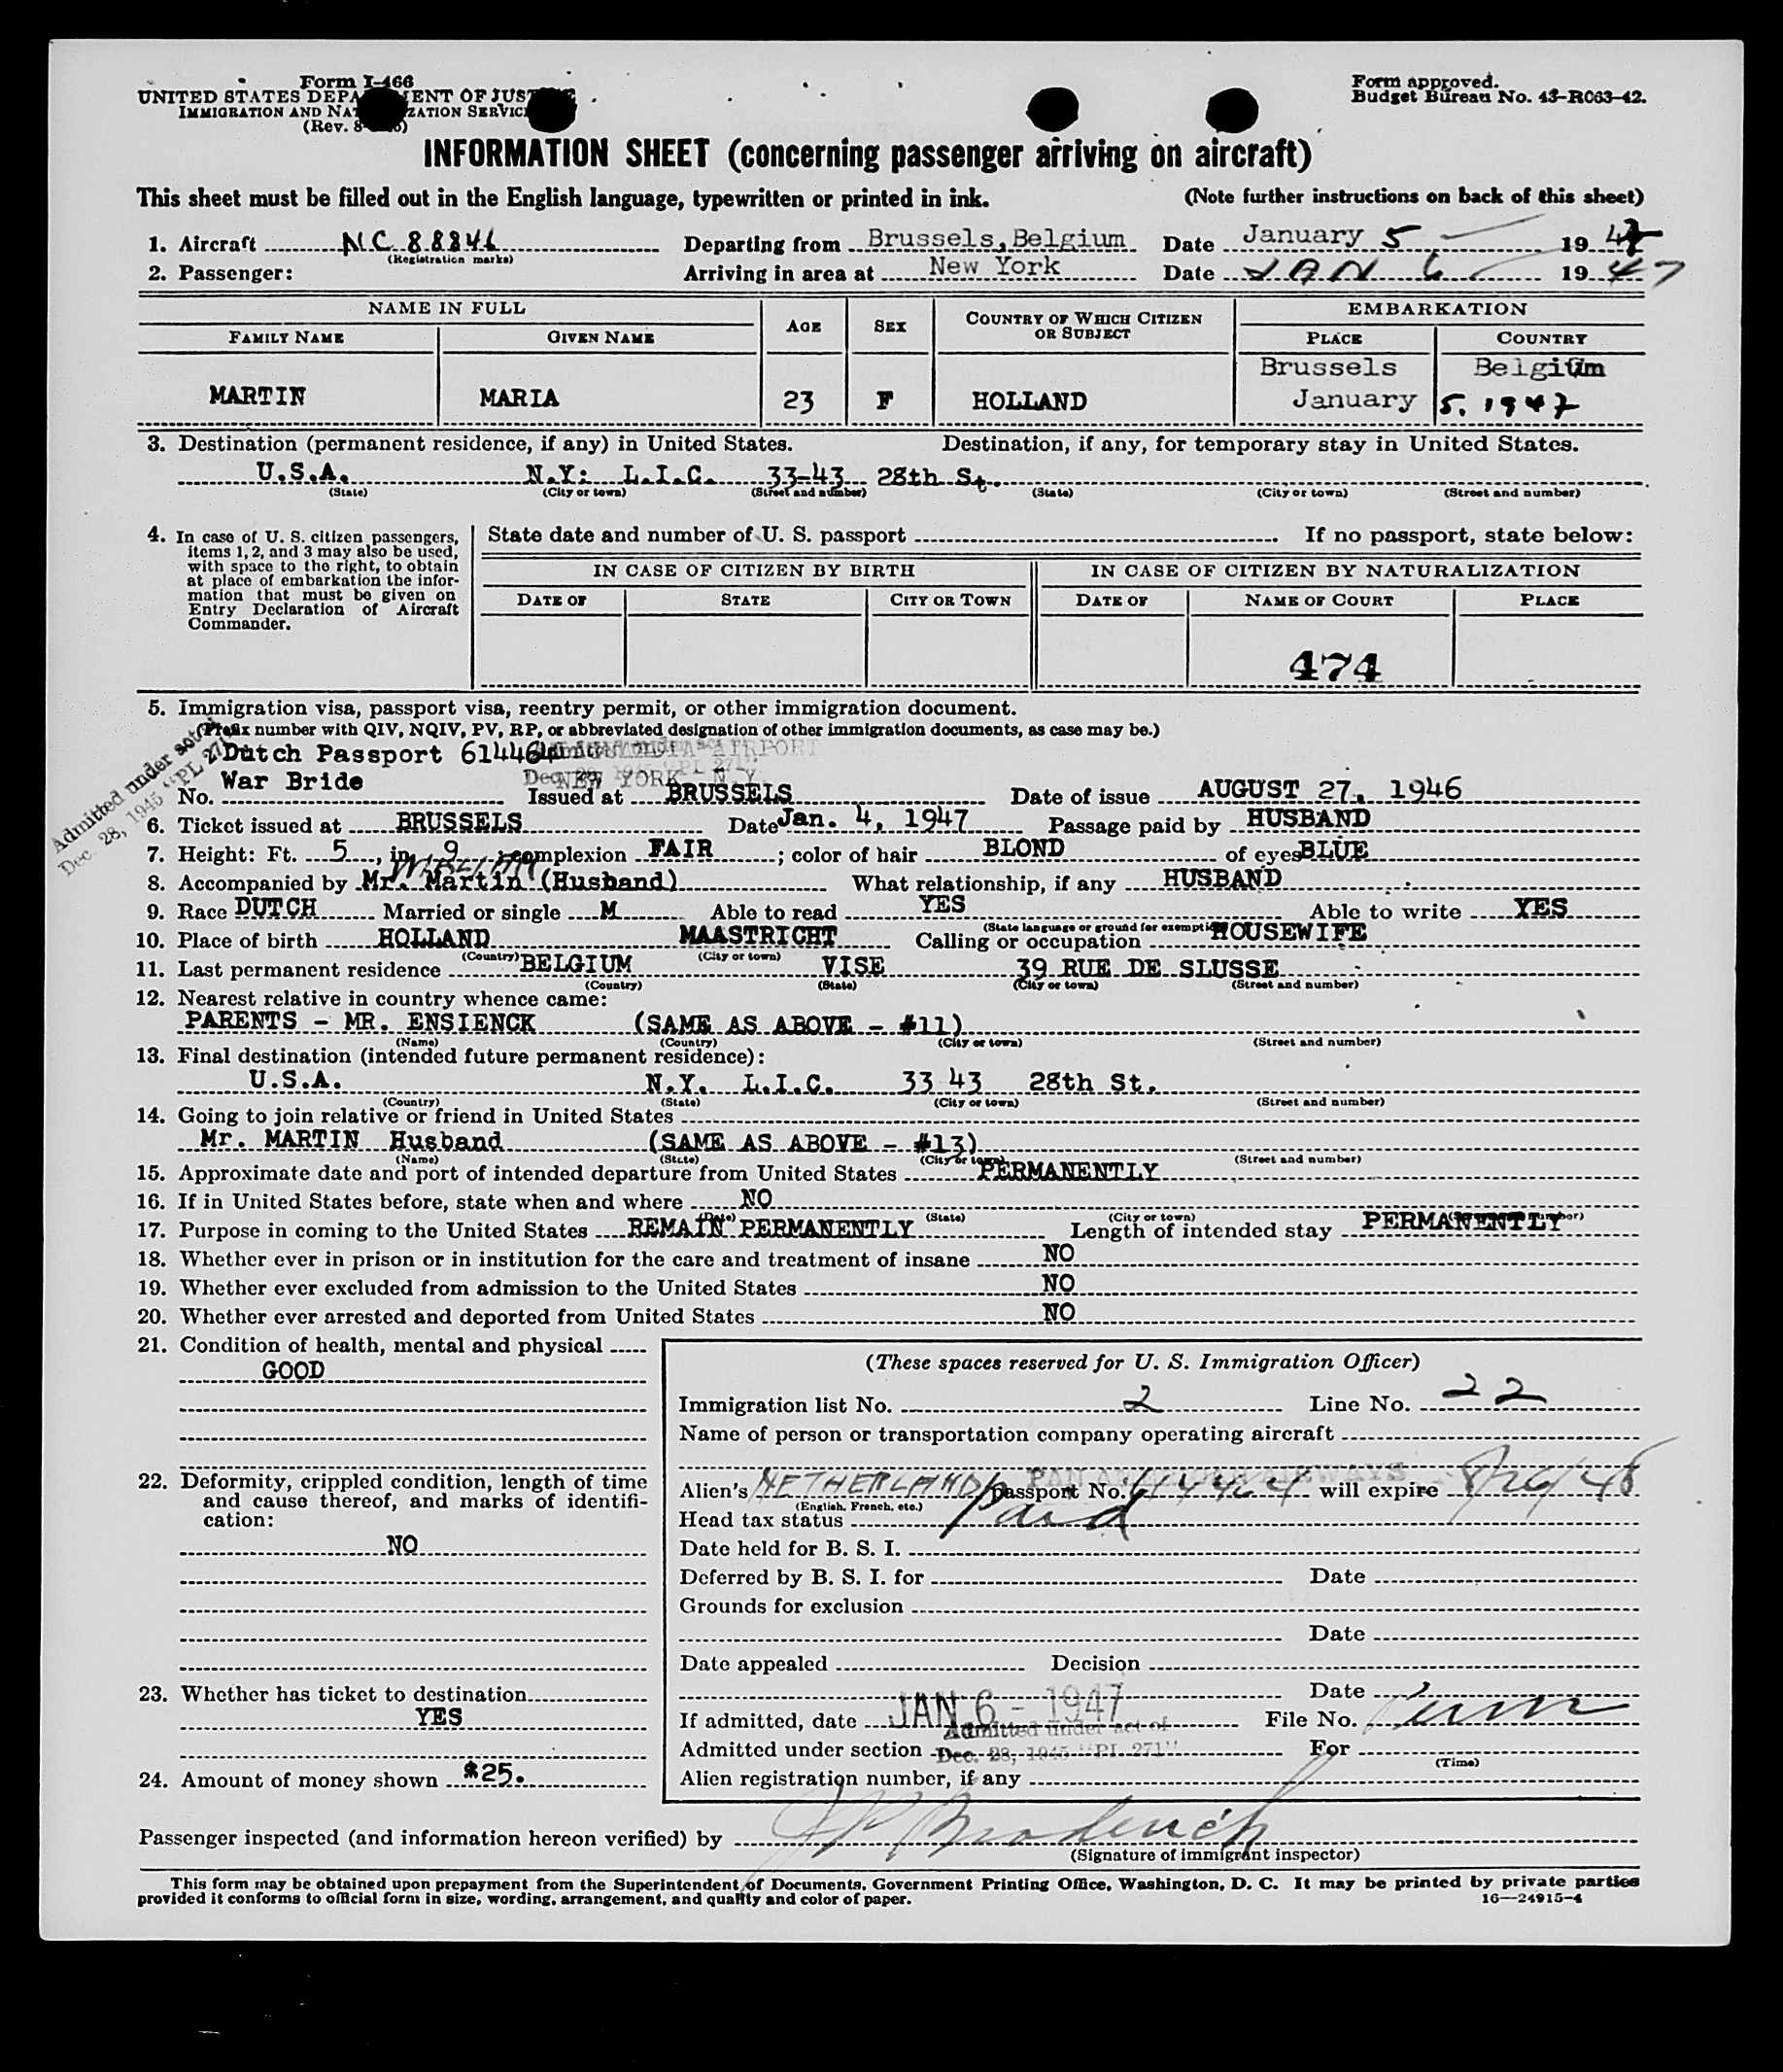 Form I-466
UNITED STATES DEPA ENT OF JUS
IMMIGRATION AND NAT ZATION SERVIC
(Rev. 8 )
Form approved.
Budget Bureau No. 43-R063-42.
INFORMATION SHEET (concerning passenger arriving on aircraft)
This sheet must be filled out in the English language, typewritten or printed in ink. (Note further instructions on back of this sheet)
1. Aircraft NC 88846 Departing from Brussels, Belgium Date January 5 1947
(Registration marks)
2. Passenger: Arriving in area at New York Date JAN 6 1947
NAME IN FULL AGE SEX COUNTRY OF WHICH CITIZEN OR SUBJECT EMBARKATION
FAMILY NAME GIVEN NAME PLACE COUNTRY
Brussels Belgium
MARTIN MARIA 23 F HOLLAND January 5, 1947
3. Destination (permanent residence, if any) in United States. Destination, if any, for temporary stay in United States.
U.S.A. N.Y: L.I.C. 33-43 28th St.
(State) (City or town) (Street and number) (State) (City or town) (Street and number)
4. In case of U. S. citizen passengers, items 1, 2, and 3 may also be used, with space to the right, to obtain at place of embarkation the information that must be given on Entry Declaration of Aircraft Commander.
State date and number of U. S. passport If no passport, state below:
IN CASE OF CITIZEN BY BIRTH IN CASE OF CITIZEN BY NATURALIZATION
DATE OF STATE CITY OR TOWN DATE OF NAME OF COURT PLACE
474
5. Immigration visa, passport visa, reentry permit, or other immigration document.
(Prefix number with QIV, NQIV, PV, RP, or abbreviated designation of other immigration documents, as case may be.)
Admitted under act of
Dec. 28, 1945 "PL 271"
Dutch Passport 614464 AIRPORT
War Bride NEW YORK N.Y.
No. Issued at BRUSSELS Date of issue AUGUST 27, 1946
6. Ticket issued at BRUSSELS Date Jan. 4, 1947 Passage paid by HUSBAND
7. Height: Ft. 5, in. 9; complexion FAIR; color of hair BLOND of eyes BLUE
8. Accompanied by Mr. Martin (Husband) What relationship, if any HUSBAND
9. Race DUTCH Married or single M Able to read YES Able to write YES
(State language or ground for exempti
10. Place of birth HOLLAND MAASTRICHT Calling or occupation HOUSEWIFE
(Country) (City or town)
11. Last permanent residence BELGIUM VISE 39 RUE DE SLUSSE
(Country) (State) (City or town) (Street and number)
12. Nearest relative in country whence came:
PARENTS - MR. ENSIENCK (SAME AS ABOVE - #11)
(Name) (Country) (City or town) (Street and number)
13. Final destination (intended future permanent residence):
U.S.A. N.Y. L.I.C. 33 43 28th St.
(Country) (State) (City or town) (Street and number)
14. Going to join relative or friend in United States
Mr. MARTIN Husband (SAME AS ABOVE - #13)
(Name) (State) (City or town) (Street and number)
15. Approximate date and port of intended departure from United States PERMANENTLY
16. If in United States before, state when and where NO
(Date) (State) (City or town)
17. Purpose in coming to the United States REMAIN PERMANENTLY Length of intended stay PERMANENTLY
18. Whether ever in prison or in institution for the care and treatment of insane NO
19. Whether ever excluded from admission to the United States NO
20. Whether ever arrested and deported from United States NO
21. Condition of health, mental and physical
GOOD
22. Deformity, crippled condition, length of time
and cause thereof, and marks of identifi-
cation:
NO
23. Whether has ticket to destination
YES
24. Amount of money shown $25.
(These spaces reserved for U. S. Immigration Officer)
Immigration list No. 2 Line No. 22
Name of person or transportation company operating aircraft
PAN AMERICAN AIRWAYS
Alien's NETHERLAND passport No. 614464 will expire 8/26/48
(English, French, etc.)
Head tax status Paid
Date held for B. S. I.
Deferred by B. S. I. for Date
Grounds for exclusion
Date
Date appealed Decision
Date
If admitted, date JAN 6 - 1947 File No. Perm
Admitted under act of
Admitted under section Dec. 28, 1945 "PL 271" For
(Time)
Alien registration number, if any
Passenger inspected (and information hereon verified) by
(Signature of immigrant inspector)
This form may be obtained upon prepayment from the Superintendent of Documents, Government Printing Office, Washington, D. C. It may be printed by private parties
provided it conforms to official form in size, wording, arrangement, and quality and color of paper. 16—24915-4